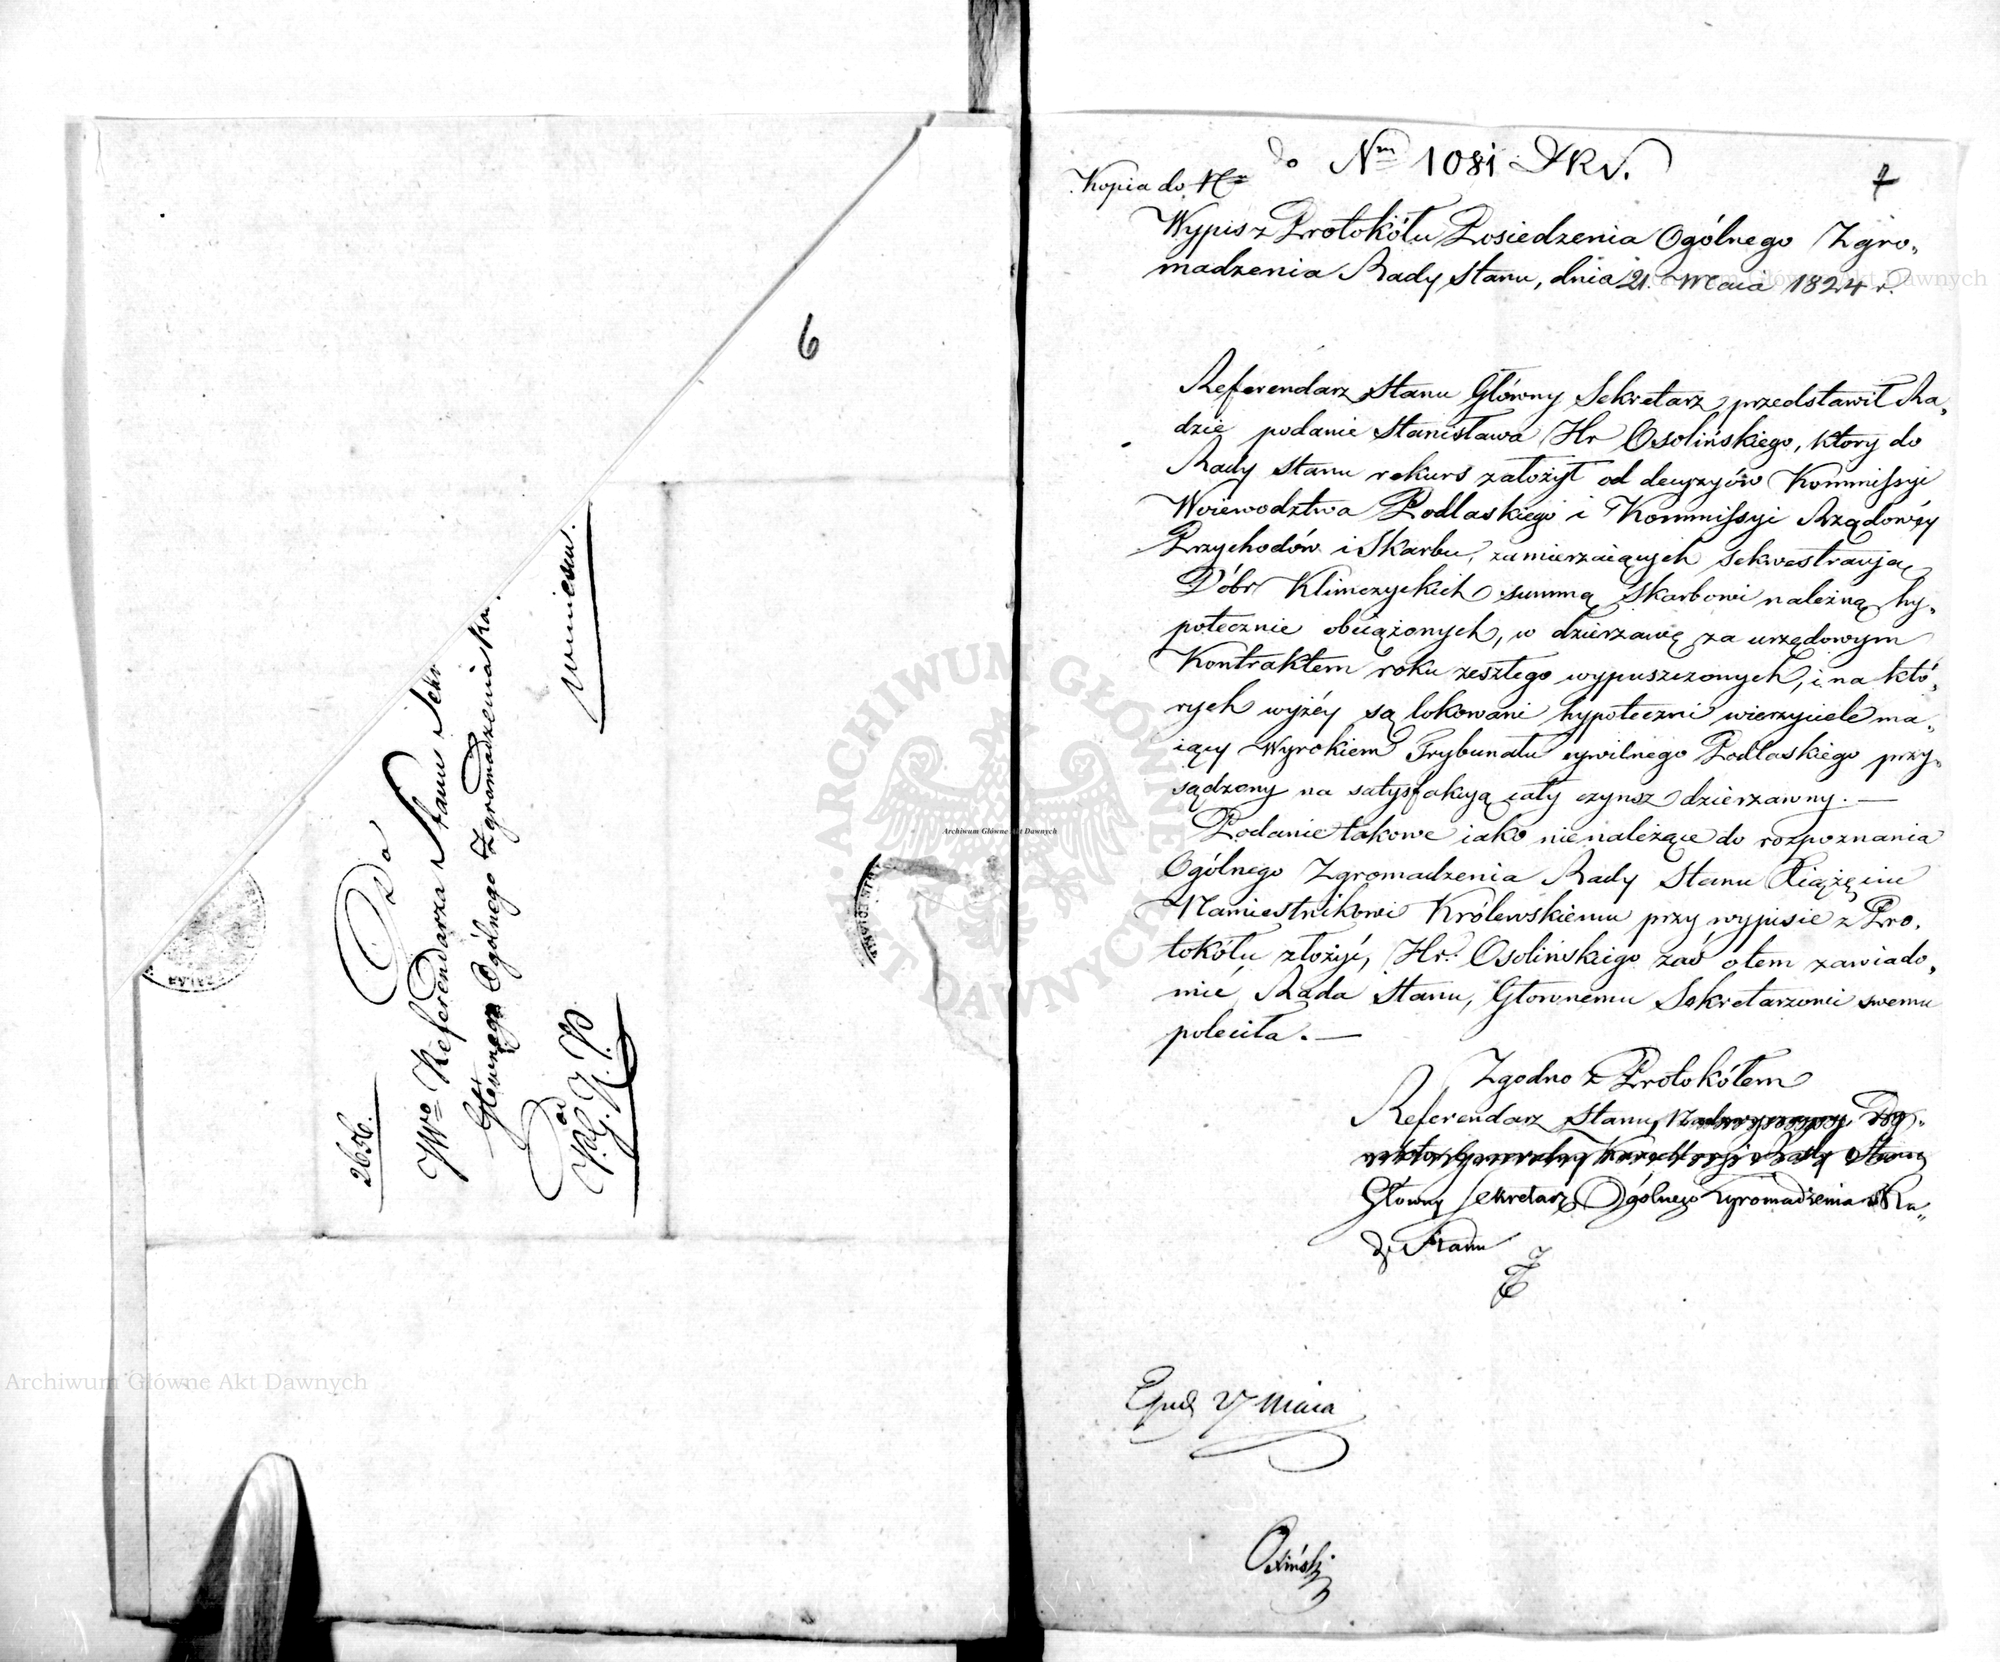 6
Do
JWo Referendarza Stanu Sekr
Głównego Ogólnego Zgromadzenia
w mieyscu.
2656.
7
do Nru 1081 DKV.
Kopia do
Wypis z Protokółu Posiedzenia Ogólnego Zgro-
madzenia Rady Stanu, dnia 21. Maia 1824 r.
Referendarz Stanu Główny Sekretarz przedstawił Ra-
dzie podanie Stanisława Hr Osolińskiego, ktory do
Rady Stanu rekurs założył od decyzyów Kommissyi
Woiewodztwa Podlaskiego i Kommissyi Rządowéy
Przychodów i Skarbu, zamierzaiących sekwestracją
Dóbr Klimczyckich summą Skarbowi należną hy-
potecznie obciążonych, w dzierżawę za urzędowym
Kontraktem roku zeszłego wypuszczonych, i na któ-
rych wyżéy są lokowani hypoteczni wierzyciele ma-
iący Wyrokiem Trybunału cywilnego Podlaskiego przy-
sądzony na satysfakcyą cały czynsz dzierżawny. —
Podanie takowe iako nienależące do rozpoznania
Ogólnego Zgromadzenia Rady Stanu Xiążęciu
Namiestnikowi Królewskiemu przy wypisie z Pro-
tokółu złożyć, Hr. Osolińskiego zaś otem zawiado-
mić, Rada Stanu, Głownemu Sekretarzowi swemu
poleciła. —
Zgodno z Protokółem
Referendarz Stanu,
Główny Sekretarz Ogólnego Zgromadzenia Ra-
dy Stanu
27 Maia
Osiński
Archiwum Główne Akt Dawnych
Archiwum Główne Akt Dawnych
Archiwum Główne Akt Dawnych
ARCHIWUM GŁÓWNE AKT DAWNYCH